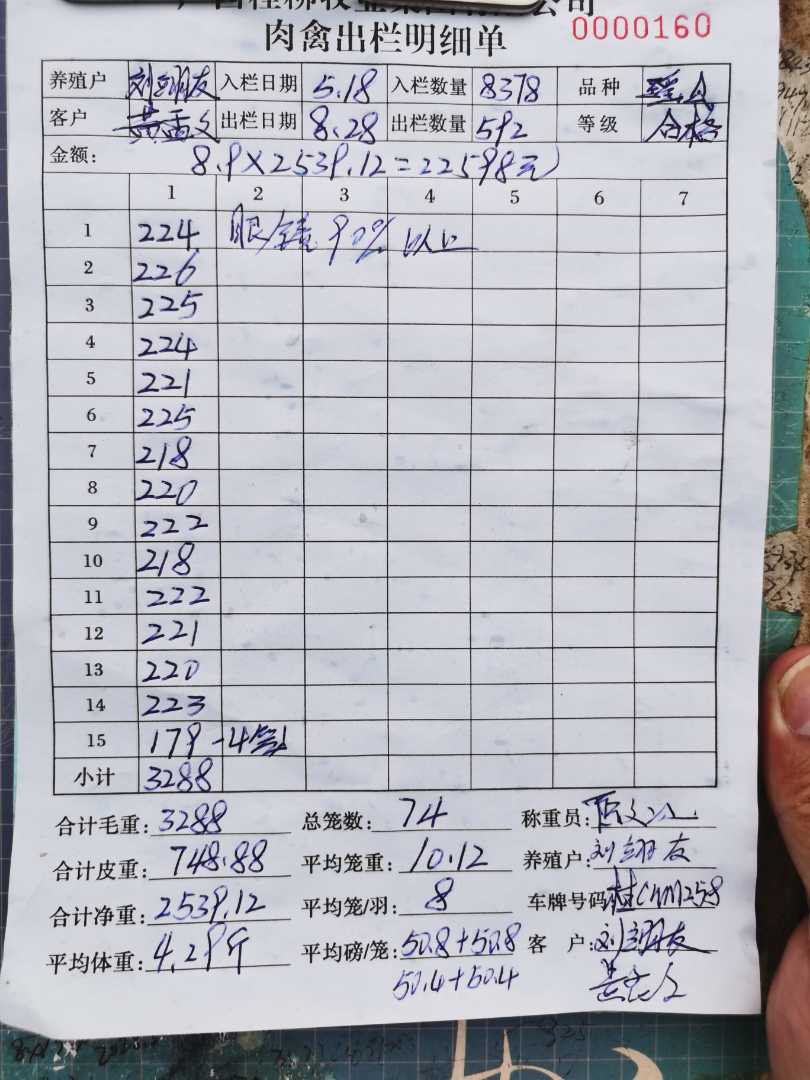 肉禽出栏明细单
0000160
养殖户 刘翊友 入栏日期 5.18 入栏数量 8378 品种
客户 出栏日期 8.28 出栏数量 592 等级 合格
金额: 8.9×2539.12=22598元
1 2 3 4 5 6 7
1 224 眼镜90%以上
2 226
3 225
4 224
5 221
6 225
7 218
8 220
9 222
10 218
11 222
12 221
13 220
14 223
15 179-4笼
小计 3288
合计毛重: 3288 总笼数: 74 称重员:
合计皮重: 748.88 平均笼重: 10.12 养殖户: 刘翊友
合计净重: 2539.12 平均笼/羽: 8 车牌号码
平均体重: 4.29斤 平均磅/笼: 50.8+50.8 客 户: 刘翊友
50.4+50.4